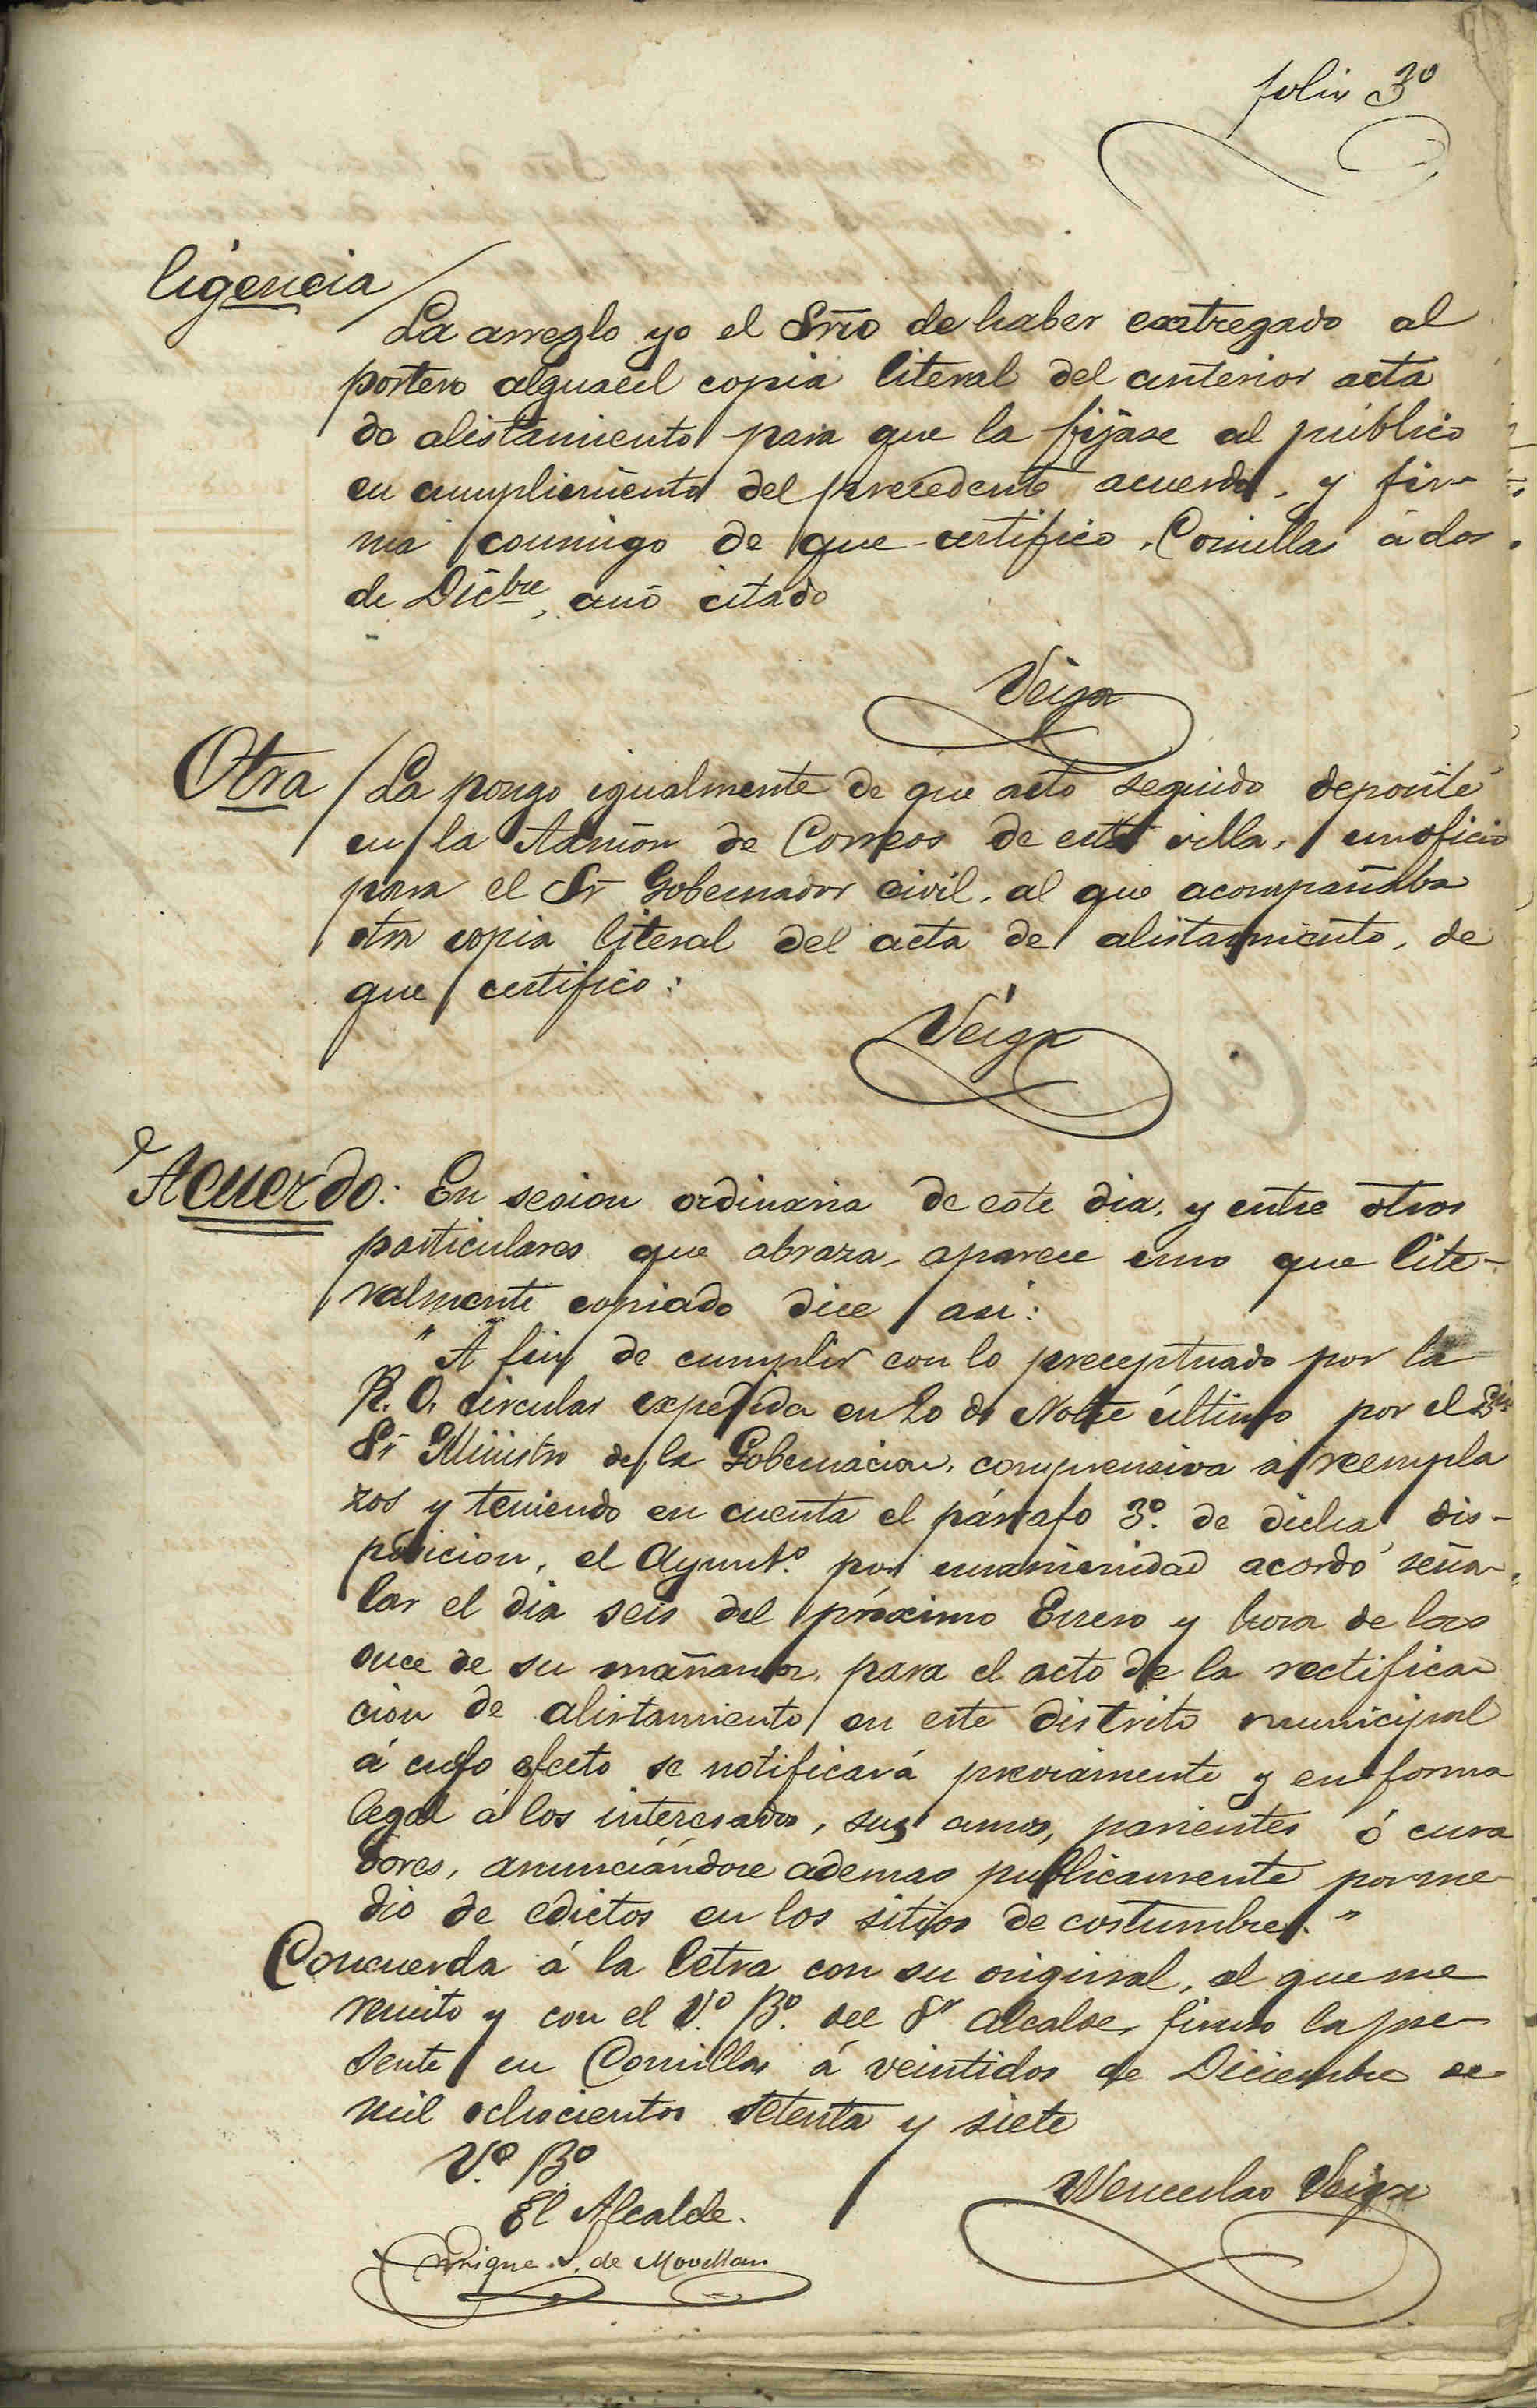 folio 3º
ligencia
La arreglo yo el Srio de haber entregado al
portero alguacil copia literal del anterior acta
de alistamiento para que la fijase al público
en cumplimiento del precedente acuerdo, y fir-
ma conmigo de que certifico. Comillas á dos
de Dicbre, año citado
Veiga
Otra / La pongo igualmente de que acto seguido deposité
en la Admon de Correos de esta villa, un oficio
para el Sr Gobernador civil, al que acompañaba
otra copia literal del acta de alistamiento, de
que certifico:
Veiga
Acuerdo: En sesion ordinaria de este dia, y entre otros
particulares que abraza, aparece uno que lite-
ralmente copiado dice asi:
"A fin de cumplir con lo preceptuado por la
R. O. circular expedida en 20 de Nobre último por el
Sr Ministro de la Gobernacion, comprensiva á reempla
zos y teniendo en cuenta el párrafo 3º. de dicha dis-
posicion, el Ayunt.º por unanimidad acordó seña-
lar el dia seis del próximo Enero y hora de las
once de su mañana, para el acto de la rectifica-
cion de alistamiento en este distrito municipal
á cuyo efecto se notificará previamente y en forma
legal á los interesados, sus amos, parientes ó cura
dores, anunciándose ademas publicamente por me-
dio de edictos en los sitios de costumbre."
Concuerda á la letra con su original, al que me
remito y con el V.º B.º del Sr Alcalde, firmo la pre-
sente en Comillas á veintidos de Diciembre de
mil ochocientos setenta y siete
V.º Bº
El Alcalde.
Wenceslao Veiga
Enrique S. de Movellan